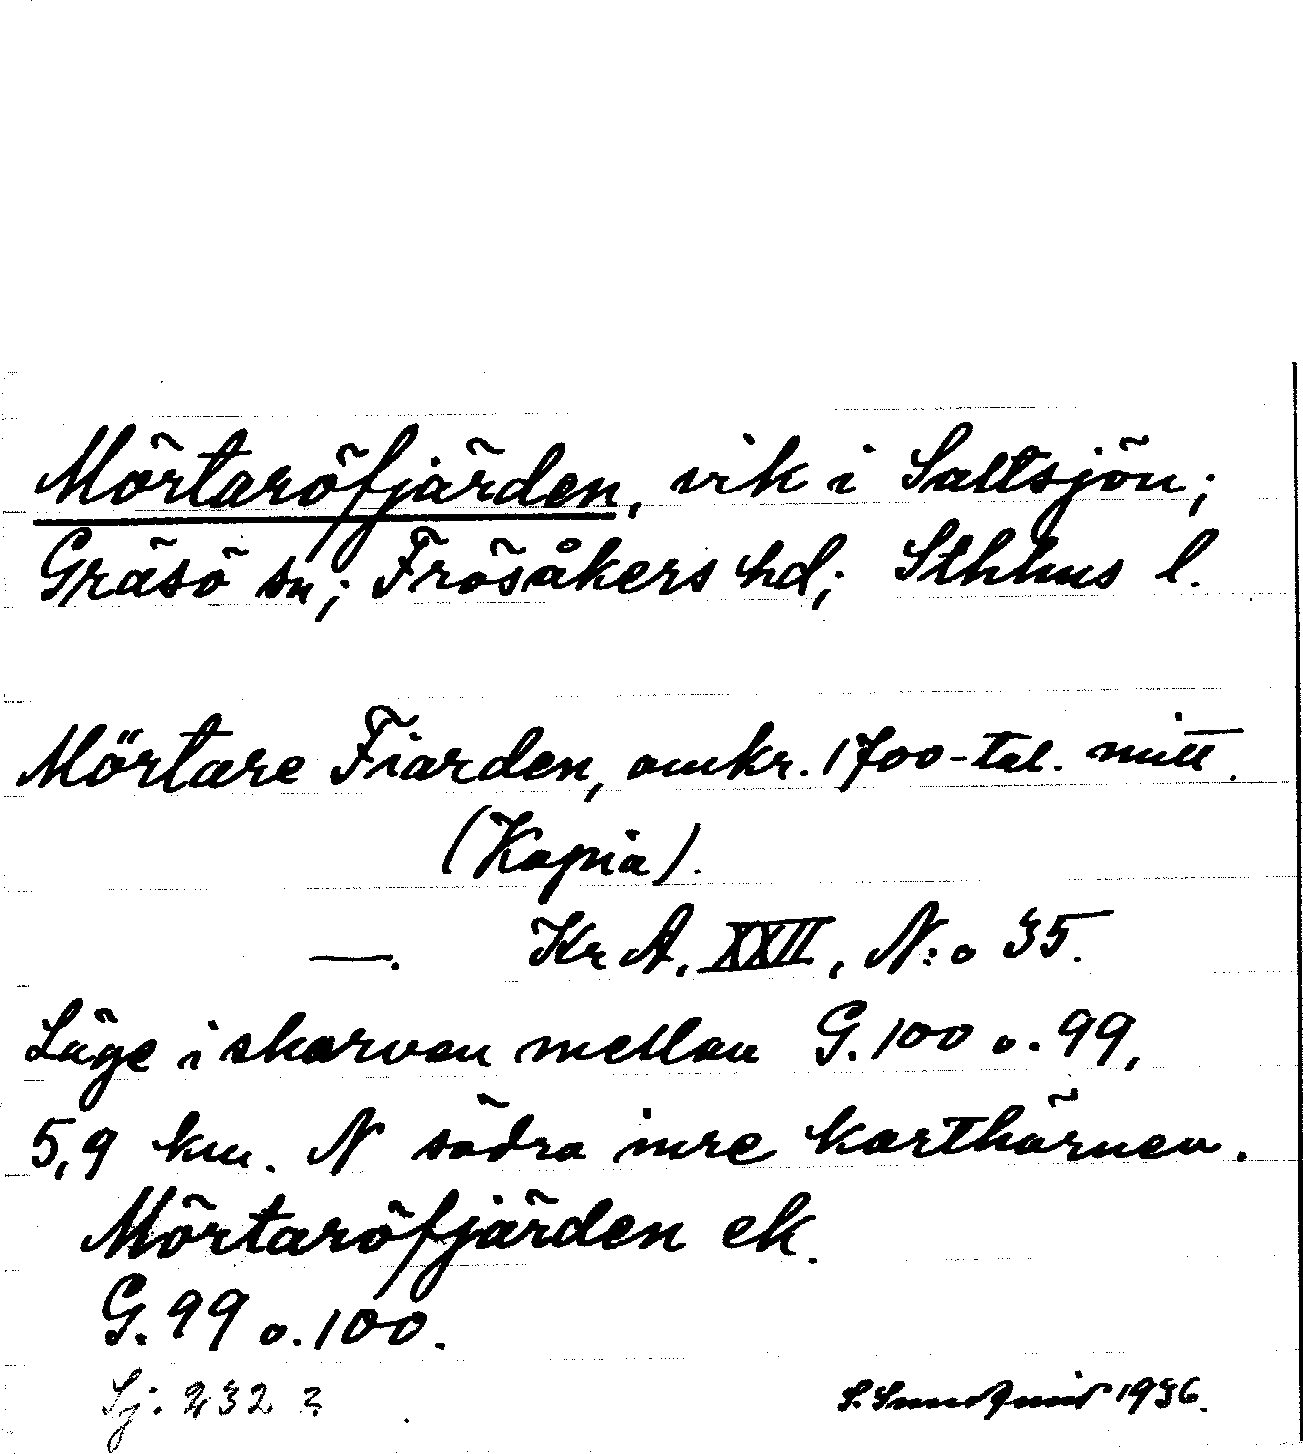 Mörtaröfjärden, vik i Saltsjön;
Gräsö sn; Frösåkers hd; Sthlms l.
Mörtare Fiarden, omkr. 1700-tal. mitt.
(Kopia).
—. Kr A, XXII, N:o 35.
Läge i skarven mellan G. 100 o. 99,
5,9 km. N södra inre karthörnen.
Mörtaröfjärden ek.
G. 99 o. 100.
Sj. 232 3
S. Sundqvist 1936.